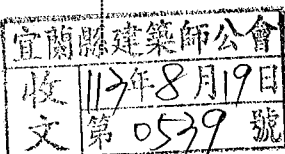 宜蘭縣建築師公會
收文
113年8月19日
第0539號